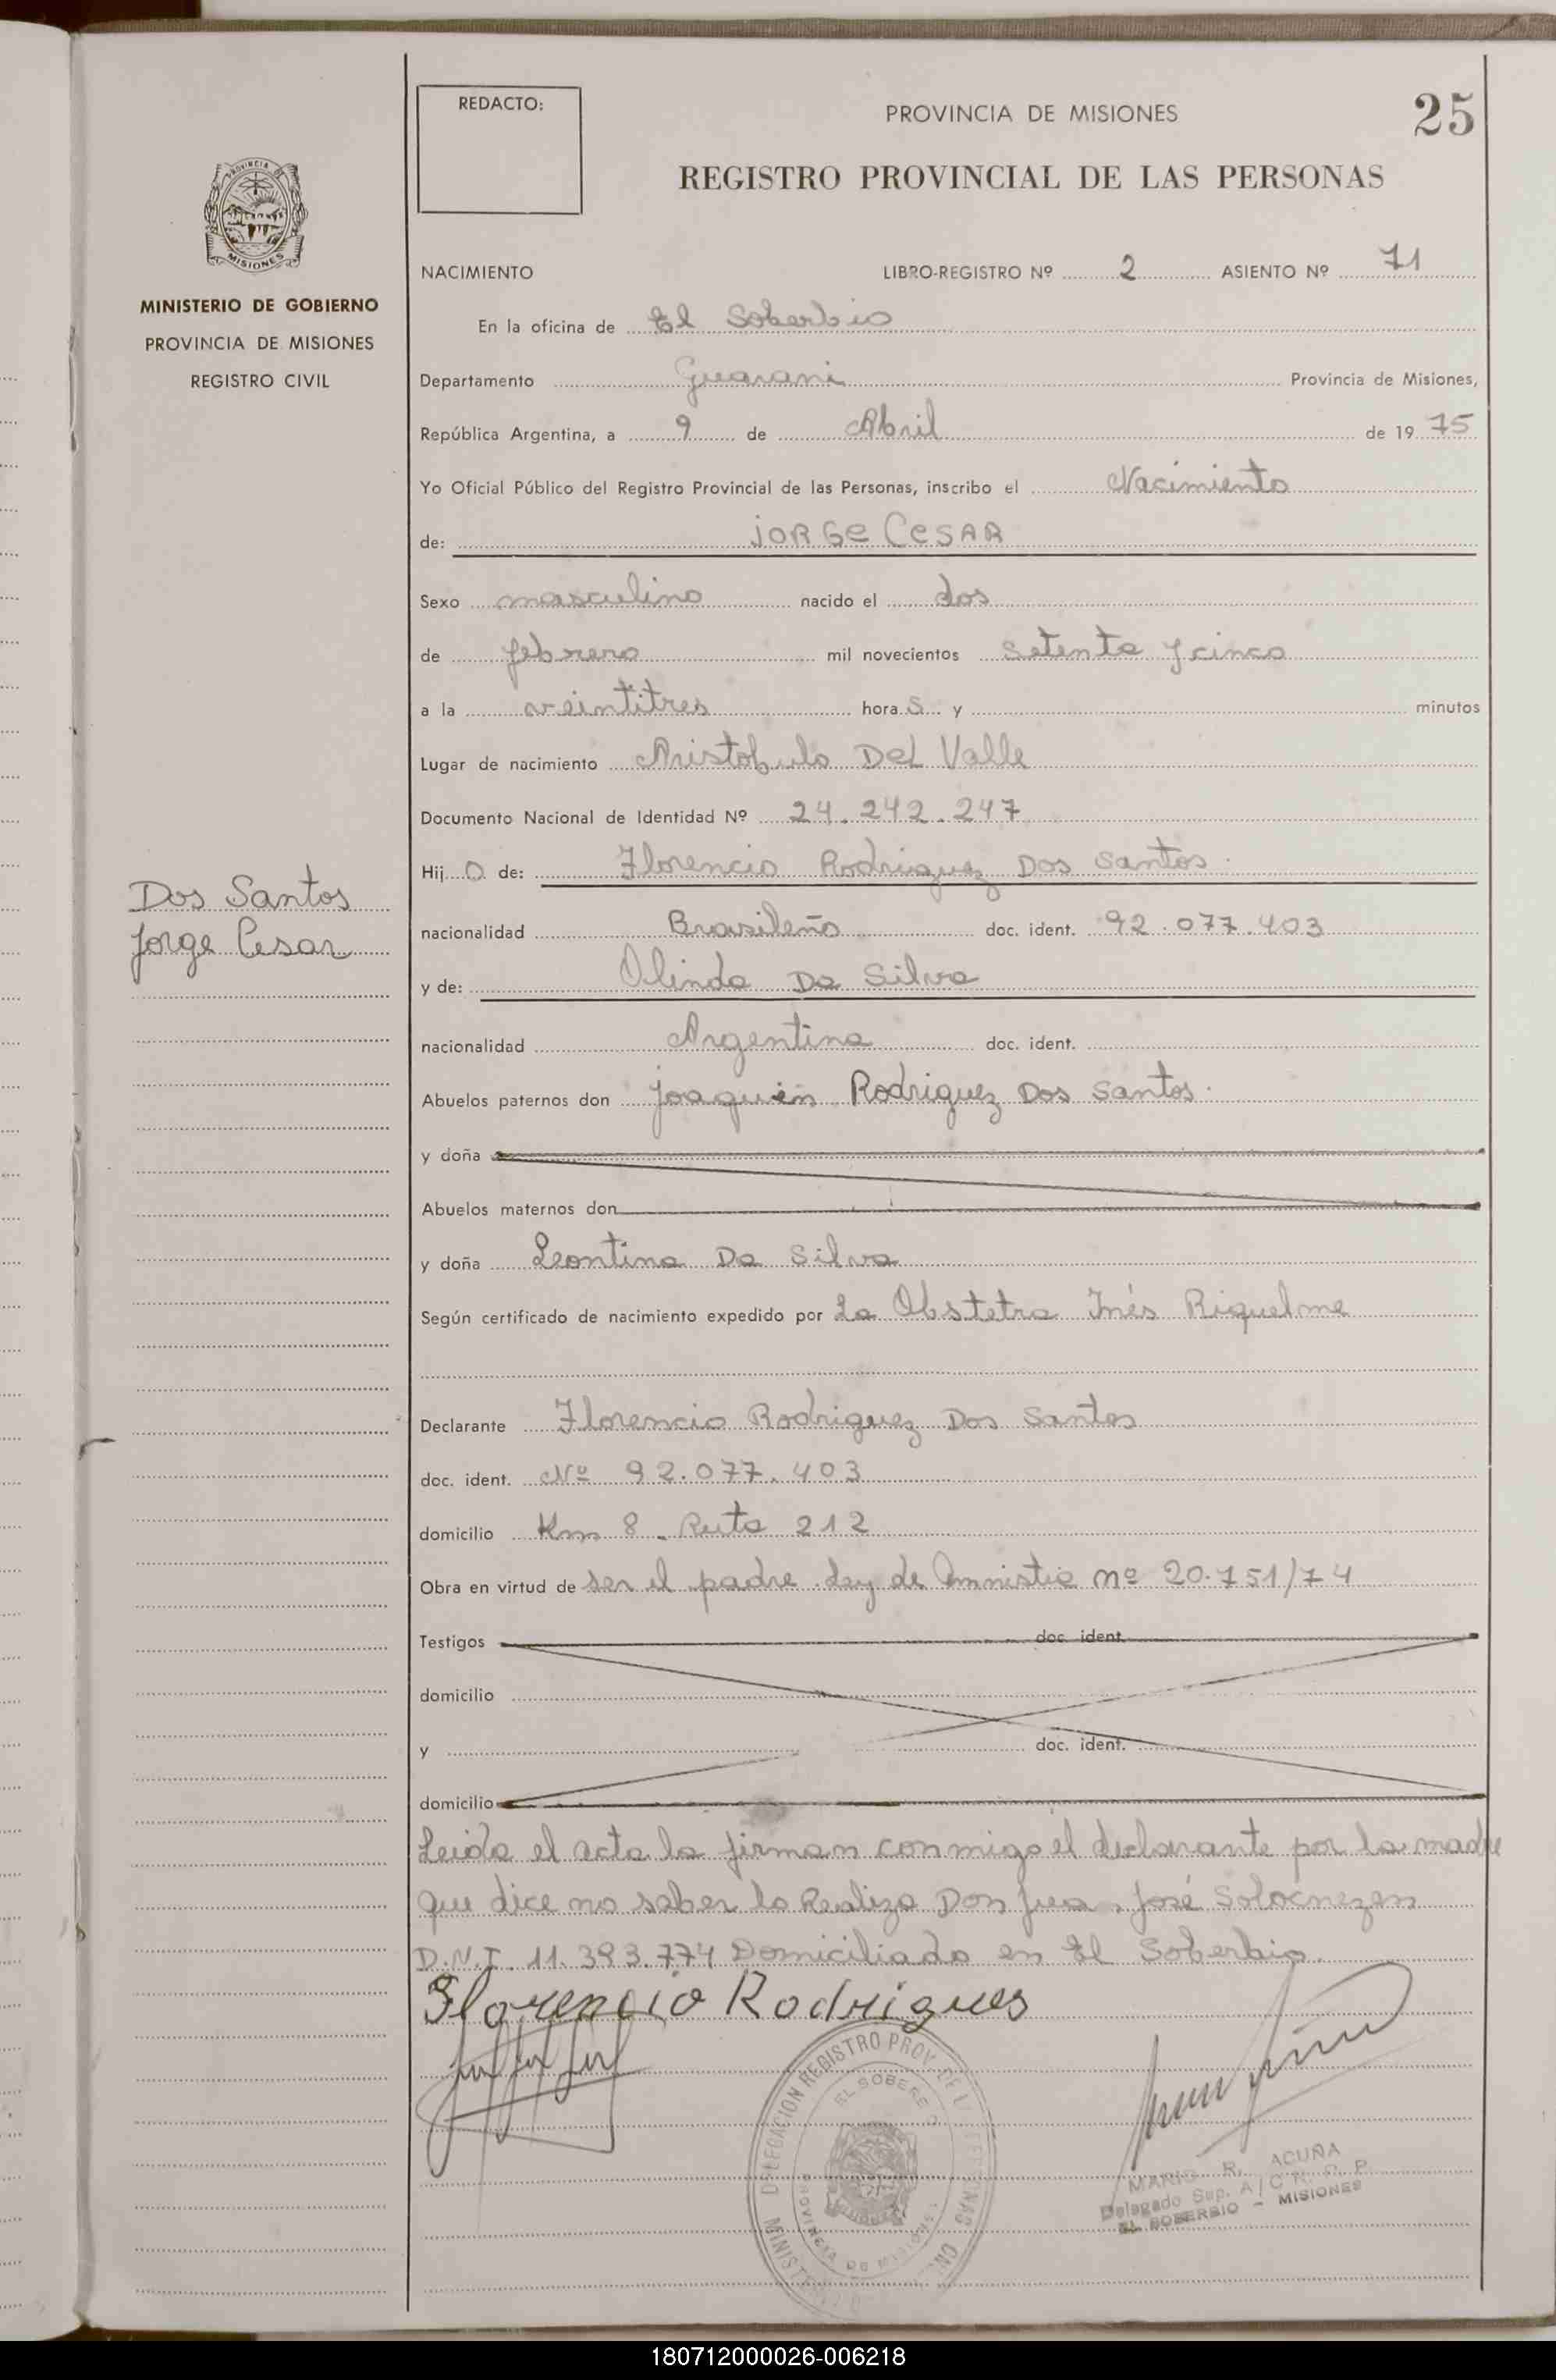 REDACTO:
PROVINCIA DE MISIONES
25
REGISTRO PROVINCIAL DE LAS PERSONAS
PROVINCIA
MISIONES
MINISTERIO DE GOBIERNO
PROVINCIA DE MISIONES
REGISTRO CIVIL
NACIMIENTO LIBRO-REGISTRO Nº 2 ASIENTO Nº 71
En la oficina de El Soberbio
Departamento Guarani Provincia de Misiones,
República Argentina, a 9 de Abril de 1975
Yo Oficial Público del Registro Provincial de las Personas, inscribo el Nacimiento
de: JORGE CESAR
Sexo masculino nacido el dos
de febrero mil novecientos setenta y cinco
a la veintitres hora s y minutos
Lugar de nacimiento Aristobulo Del Valle
Documento Nacional de Identidad Nº 24.242.247
Hij o de: Florencio Rodriguez Dos Santos.
Dos Santos
Jorge Cesar
nacionalidad Brasileño doc. ident. 92.077.403
y de: Olinda Da Silva
nacionalidad Argentina doc. ident.
Abuelos paternos don Joaquin Rodriguez Dos Santos.
y doña
Abuelos maternos don
y doña Leontina Da Silva
Según certificado de nacimiento expedido por La Obstetra Inés Riquelme
Declarante Florencio Rodriguez Dos Santos
doc. ident. Nº 92.077.403
domicilio Km 8 - Ruta 212
Obra en virtud de ser el padre. Ley de Amnistia nº 20.751/74
Testigos doc. ident.
domicilio
y doc. ident.
domicilio
Leida el acta la firman conmigo el declarante por la madre
que dice no saber lo Realiza Don Juan José
D.N.I. 11.393.774 Domiciliado en El Soberbio.
Florencio Rodrigues
DELEGACION REGISTRO PROV. DE L
EL SOBERBIO
PROVINCIA DE MISIONES
MARIO R. ACUÑA
Delegado Sup. A/C R. P. P.
EL SOBERBIO - MISIONES
180712000026-006218